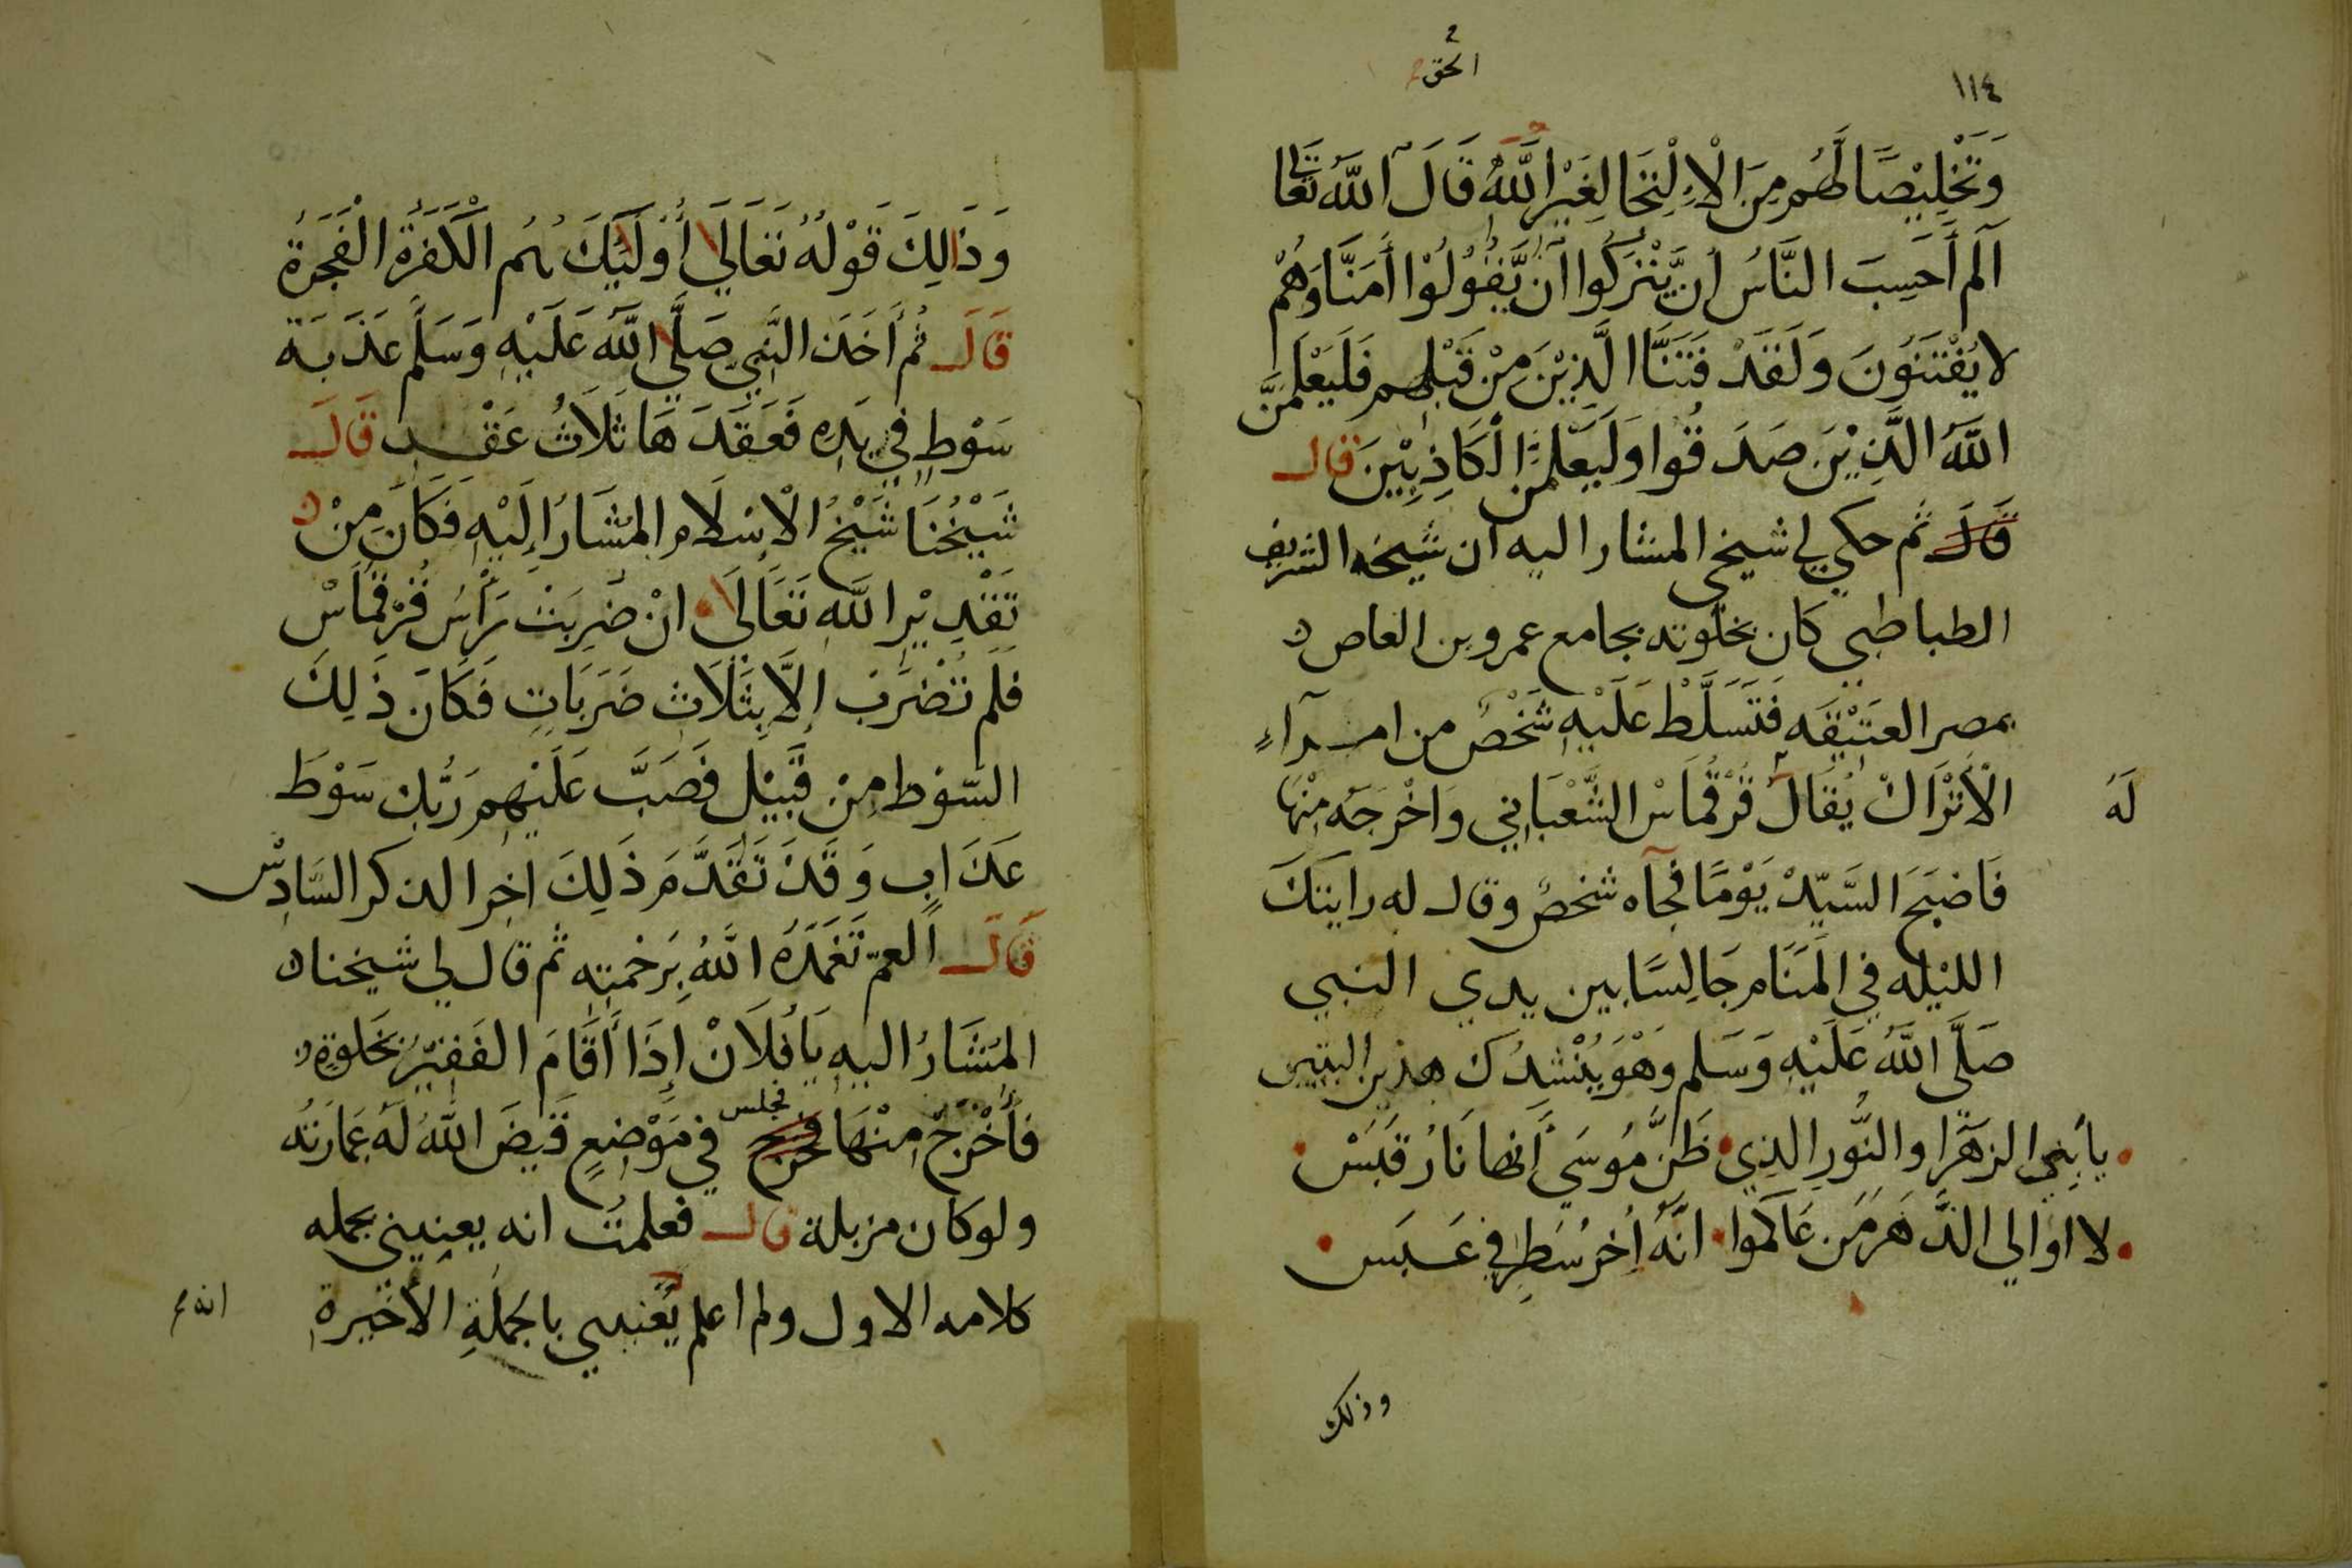 ١١٤
الحق
وَتَخْلِيْصًا لَهُم مِنَ الْاِلْتِجَا لِغَيْرِ اللَّهُ قَالَ اللَّهُ تَعَا
آلم أَحَسِبَ النَّاسُ اَنْ يَّتْرَكُوا اَنْ يَّقُوْلُوْا اَمَنَّا وَهُمْ
لا يُفْتَنَوُنَ وَلَقَدْ فَتَنَّا الَّذِيْنَ مِنْ قَبْلِهِم فَلَيَعْلَمَنَّ
اللَّهُ الَّذِيْنَ صَدَقُوا وَلَيَعْلَمَنَّ الْكَاذِبِيْنَ قال
قَالَ ثم حكي لي شيخي المشار اليه ان شيخه الشريف
الطباطبي كان بخلوته بجامع عمرو بن العاص
بمصر العَتِيْقَه فَتَسَلَّطْ عَلَيْهِ شَخْصٌ من امرآءِ
الْأَتْرَاكْ يُقَالُ قُرْقُمَاسْ الشَّعْبَانِي وَاَخْرَجَه مِنْهَا
لَهُ
فَاصْبَحَ السَّيّدْ يَوْمًا فجآه شخصٌ وقال له رايتك
الليْله في الْمَنَام جَالِسًا بين يدي النبي
صَلَّى اللَّهُ عَلَيْهِ وَسَلم وَهْوَ يُنْشِدُكَ هذين البيتين
يا بَنِي الزهَرَا والنُّورِ الذِي ظَنَّ مُوسَي اَنها نَارُ قَبَسْ
لا اوَالي الدَّهَرَ مَن عَادَاكموا انَّهُ اَخِر سَطْرٍ في عَبَس
وذلك
وَذَالِكَ قَوْلُهُ تَعَالَي أُوْلَئِكَ هُم الْكَفَرَةُ الْفَجَرَةُ
قَالَ ثُمَّ أَخَذَ النَّبِي صَلَّي اللَّهُ عَلَيْهِ وَسَلَّم عَذَبَة
سَوْطٍ فِي يَدِهِ فَعَقَدَهَا ثَلَاثُ عَقْد قَالَ
شَيْخُنَا شَيْخُ الْاِسْلَام المُشَارُ إِلَيْهِ فَكَانَ مِنْ
تَقْدِيْرِ اللَّهِ تَعَالَى انْ ضُرِبَتْ رَأْسُ قُرْقُمَاسْ
فَلَم تُضْرَبْ إِلَّا بِثَلَاثِ ضَرَبَاتٍ فَكَانَ ذَلِكَ
السّوْط مِنْ قَبِيْل فَصَبَّ عَلَيْهِم رَبُّكَ سَوْطَ
عَذَابٍ وَقَدْ تَقَدَّمَ ذَلِكَ اخِر الذكر السَّادِسْ
قَالَ العمّ تَغَمَّدَهُ اللَّهُ بِرَحْمتِهِ ثم قال لي شيخنا
المُشَارُ اليهِ يَا فُلَانْ إِذَا أَقَامَ الفَقِيْرُ بَخَلوَةٍ
فَأُخْرِجَ مِنْهَا فجلس في مَوْضِعٍ قَيضَ اللَّهُ لَهُ عِمَارَتَه
ولو كان مزبلة قال فعلمتُ انه يعنيني بجمله
كلامه الاول ولم اعلم يَعْنيني باجملةِ الأَخْيرةِ
انه